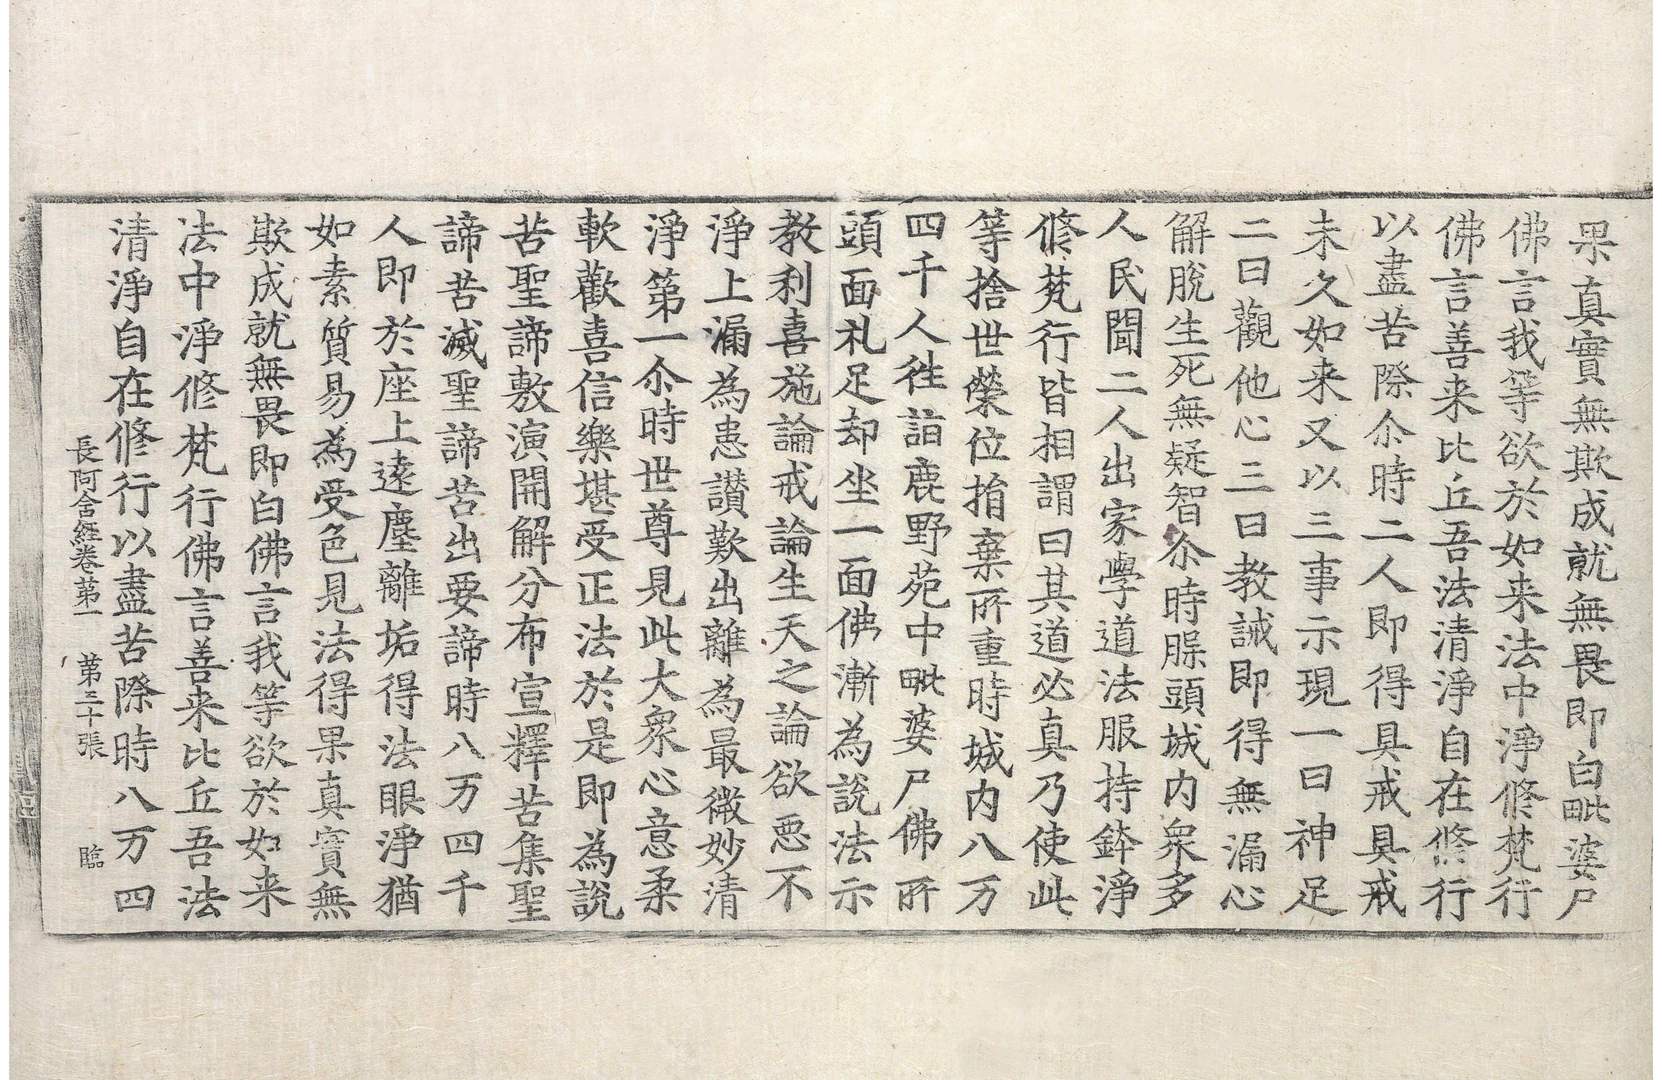 果真實無欺成就無畏即白毗婆尸
佛言我等欲於如来法中淨修梵行
佛言善来比丘吾法清淨自在修行
以盡苦際尒時二人即得具戒具戒
未久如来又以三事示現一曰神足
二曰觀他心三曰教誡即得無漏心
解脫生死無疑智尒時槃頭城内衆多
人民聞二人出家學道法服持鉢淨
修梵行皆相謂曰其道必真乃使此
等捨世榮位捐棄所重時城内八万
四千人往詣鹿野苑中毗婆尸佛所
頭面礼足却坐一面佛漸為說法示
教利喜施論戒論生天之論欲惡不
淨上漏為患讃歎出離為最微妙清
淨第一尒時世尊見此大衆心意柔
軟歡喜信樂堪受正法於是即為說
苦聖諦敷演開解分布宣釋苦集聖
諦苦滅聖諦苦出要諦時八万四千
人即於座上遠塵離垢得法眼淨猶
如素質易為受色見法得果真實無
欺成就無畏即白佛言我等欲於如来
法中淨修梵行佛言善来比丘吾法
清淨自在修行以盡苦際時八万四
長阿含經卷第一 第三十張 臨